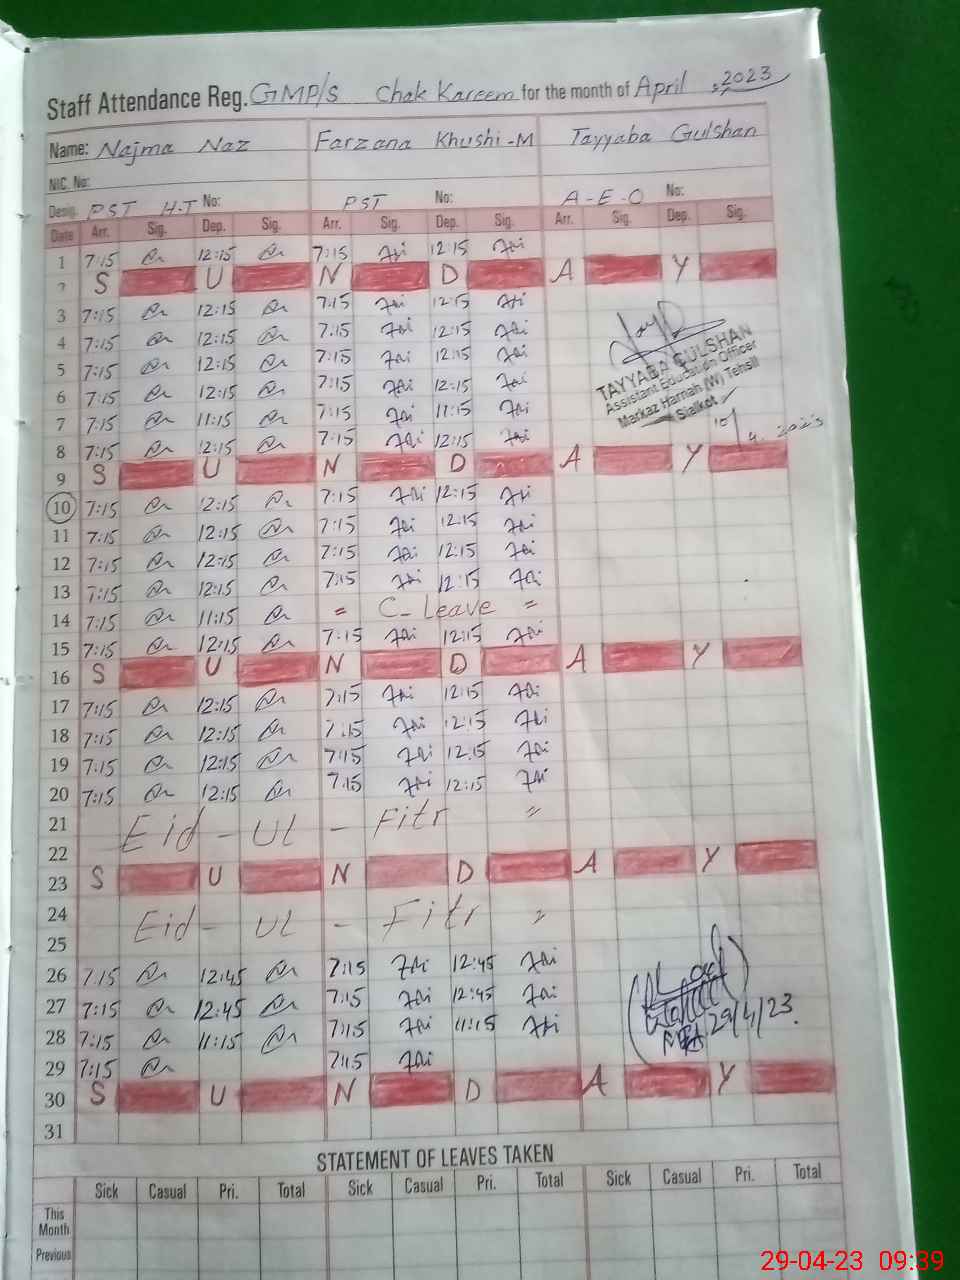 Staff Attendance Reg. GMP/S Chak Kareem for the month of April, 2023
Name: Najma Naz Farzana Khushi-M Tayyaba Gulshan
NIC. No:
Desig. PST H.T No: PST No: A-E-O No:
Date Arr. Sig. Dep. Sig. Arr. Sig. Dep. Sig. Arr. Sig. Dep. Sig.
1 7:15 12:15 7:15 12:15
2 S U N D A Y
3 7:15 12:15 7:15 12:15
4 7:15 12:15 7:15 12:15
5 7:15 12:15 7:15 12:15
6 7:15 12:15 7:15 12:15
7 7:15 11:15 7:15 11:15
8 7:15 12:15 7:15 12:15
TAYYABA GULSHAN
Assistant Education Officer
Markaz Harnah (W) Tehsil
Sialkot
10/4. 2023
9 S U N D A Y
10 7:15 12:15 7:15 12:15
11 7:15 12:15 7:15 12:15
12 7:15 12:15 7:15 12:15
13 7:15 12:15 7:15 12:15
14 7:15 11:15 " C-Leave "
15 7:15 12:15 7:15 12:15
16 S U N D A Y
17 7:15 12:15 7:15 12:15
18 7:15 12:15 7:15 12:15
19 7:15 12:15 7:15 12:15
20 7:15 12:15 7:15 12:15
21 Eid - Ul - Fitr "
22
23 S U N D A Y
24 Eid - Ul - Fitr "
25
26 7:15 12:45 7:15 12:45
27 7:15 12:45 7:15 12:45
28 7:15 11:15 7:15 11:15
29/4/23.
29 7:15 7:15
30 S U N D A Y
31
STATEMENT OF LEAVES TAKEN
Sick Casual Pri. Total Sick Casual Pri. Total Sick Casual Pri. Total
This Month
Previous
29-04-23 09:39